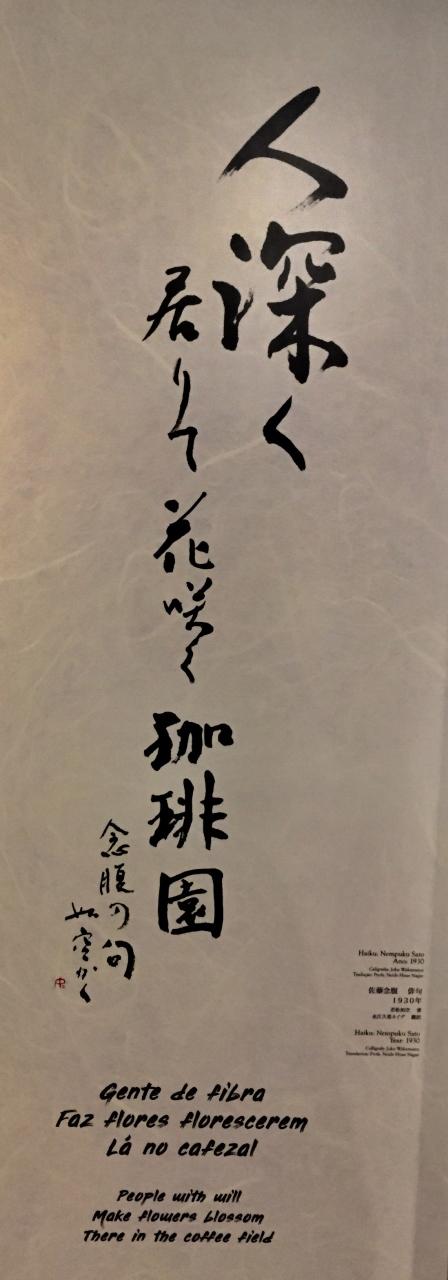 人深く
居りて花咲く珈琲園
念腹の句
如空かく
Haiku: Nempuku Sato
Ano: 1930
佐藤念腹 俳句
1930年
Haiku: Nempuku Sato
Year: 1930
Gente de fibra
Faz flores florescerem
Lá no cafezal
People with will
Make flowers blossom
There in the coffee field